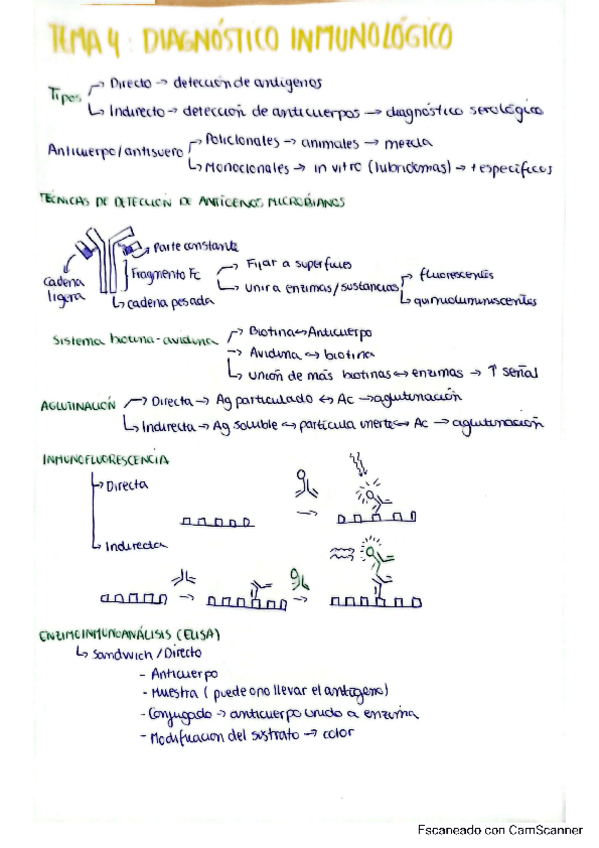 TEMA 4 : DIAGNÓSTICO INMUNOLÓGICO
Tipos
Directo → detección de antígenos
Indirecto → detección de anticuerpos → diagnóstico serológico
Anticuerpo/antisuero
Policlonales → animales → mezcla
Monoclonales → in vitro (hibridomas) → + específicos
TÉCNICAS DE DETECCIÓN DE ANTÍGENOS MICROBIANOS
cadena ligera
Parte constante
Fragmento Fc
cadena pesada
Fijar a superficies
Unir a enzimas/sustancias
fluorescentes
quimioluminiscentes
Sistema biotina-avidina
Biotina ↔ Anticuerpo
Avidina ↔ biotina
Unión de más biotinas ↔ enzimas → ↑ señal
AGLUTINACIÓN
Directa → Ag particulado ↔ Ac → aglutinación
Indirecta → Ag soluble ↔ partícula inerte ↔ Ac → aglutinación
INMUNOFLUORESCENCIA
Directa
Indirecta
ENZIMOINMUNOANÁLISIS (ELISA)
Sandwich/Directo
- Anticuerpo
- Muestra (puede o no llevar el antígeno)
- Conjugado → anticuerpo unido a enzima
- Modificación del sustrato → color
Escaneado con CamScanner